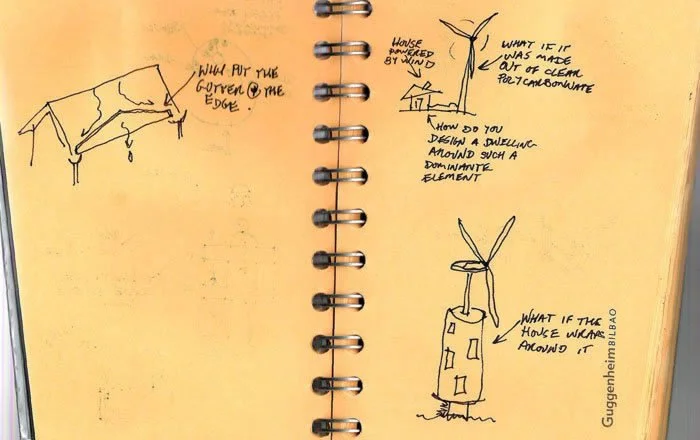 WHY PUT THE
GUTTER @ THE
EDGE.
HOUSE
POWERED
BY WIND
WHAT IF IT
WAS MADE
OUT OF CLEAR
POLYCARBONATE
HOW DO YOU
DESIGN A DWELLING
AROUND SUCH A
DOMINANTE
ELEMENT
WHAT IF THE
HOUSE WRAPS
AROUND IT
GuggenheimBILBAO